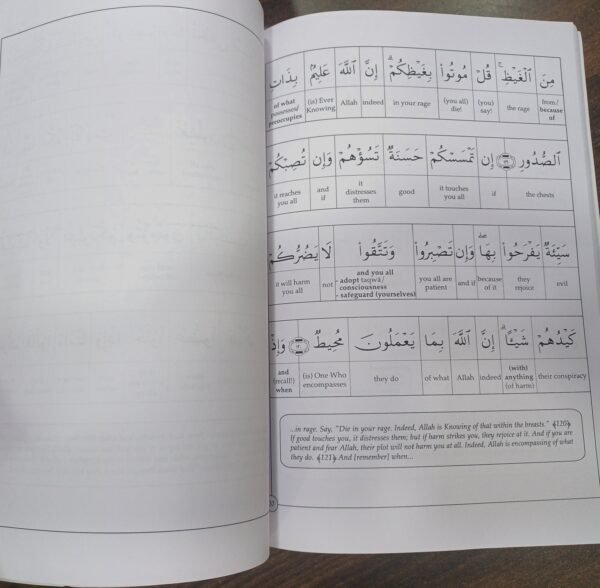 مِنَ ٱلْغَيْظِ ۚ قُلْ مُوتُوا۟ بِغَيْظِكُمْ ۗ إِنَّ ٱللَّهَ عَلِيمٌۢ بِذَاتِ
from/ because of the rage (you) say! (you all) die! in your rage indeed Allah (is) Ever Knowing of what possesses/ preoccupies
ٱلصُّدُورِ إِن تَمْسَسْكُمْ حَسَنَةٌ تَسُؤْهُمْ وَإِن تُصِبْكُمْ
the chests if it touches you all good it distresses them and if it reaches you all
سَيِّئَةٌ يَفْرَحُوا۟ بِهَا ۖ وَإِن تَصْبِرُوا۟ وَتَتَّقُوا۟ لَا يَضُرُّكُمْ
evil they rejoice because of it and if you all are patient and you all - adopt taqwā/ consciousness - safeguard (yourselves) not it will harm you all
كَيْدُهُمْ شَيْـًٔا ۗ إِنَّ ٱللَّهَ بِمَا يَعْمَلُونَ مُحِيطٌ ١٢٠ وَإِذْ
their conspiracy (with) anything (of harm) indeed Allah of what they do (is) One Who encompasses and (recall!) when
...in rage. Say, "Die in your rage. Indeed, Allah is Knowing of that within the breasts." ﴾120﴿
If good touches you, it distresses them; but if harm strikes you, they rejoice at it. And if you are
patient and fear Allah, their plot will not harm you at all. Indeed, Allah is encompassing of what
they do. ﴾121﴿ And [remember] when...